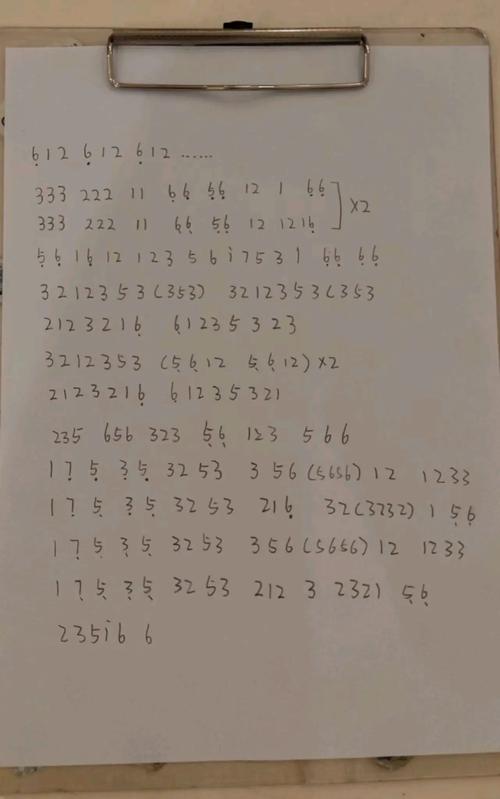 6̣12 6̣12 6̣12 ......
333 222 11 6̣6̣ 5̣6̣ 12 1 6̣6̣
333 222 11 6̣6̣ 5̣6̣ 12 1216̣ ]×2
5̣6̣ 16̣ 12 123 56 i7531 6̣6̣ 6̣6̣
3212353(353) 3212353(353
2123216̣ 6̣1235323
3212353 (5̣6̣12 5̣6̣12)×2
2123216̣ 6̣1235321
235 656 323 5̣6̣ 123 566
17̣5̣ 3̣5̣ 3253 356(5656)12 1233
17̣5̣ 3̣5̣ 3253 216̣ 32(3232)1 5̣6̣
17̣5̣ 3̣5̣ 3253 356(5656)12 1233
17̣5̣ 3̣5̣ 3253 212 3 2321 5̣6̣
235i6 6